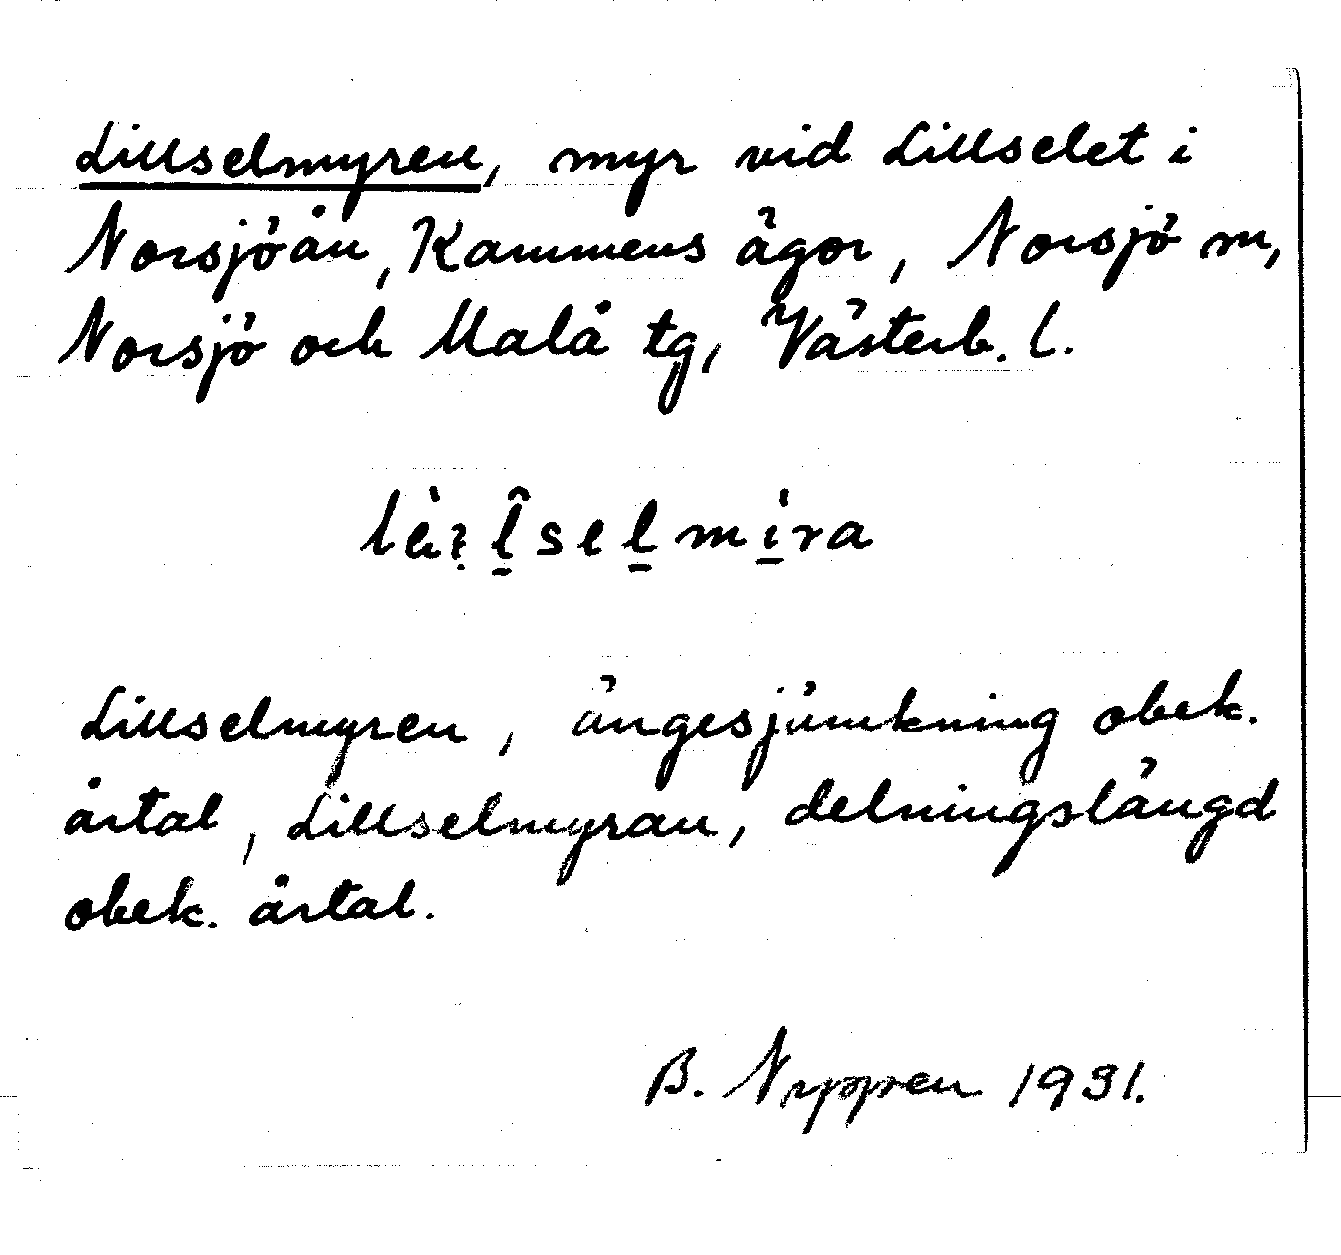 Lillselmyren, myr vid Lillselet i
Norsjöån, Kammens ägor, Norsjö m,
Norsjö och Malå tg, Västerb. l.
Lillselmyren, ängesjämkning obek.
årtal, Lillselmyran, delningslängd
obek. årtal.
B. 1931.